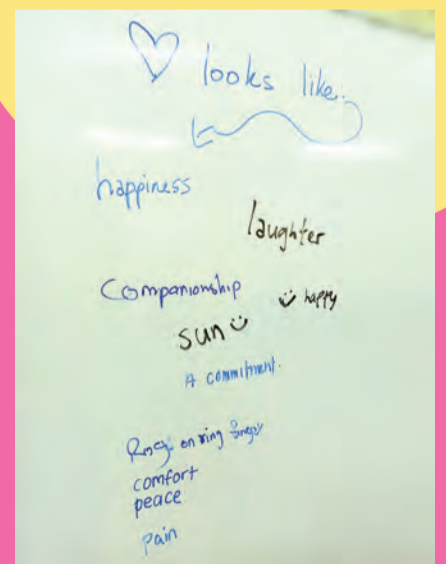 ♡ looks like:
happiness
laughter
Companionship
happy
sun
A commitment.
Ring on ring finger
comfort
peace
pain